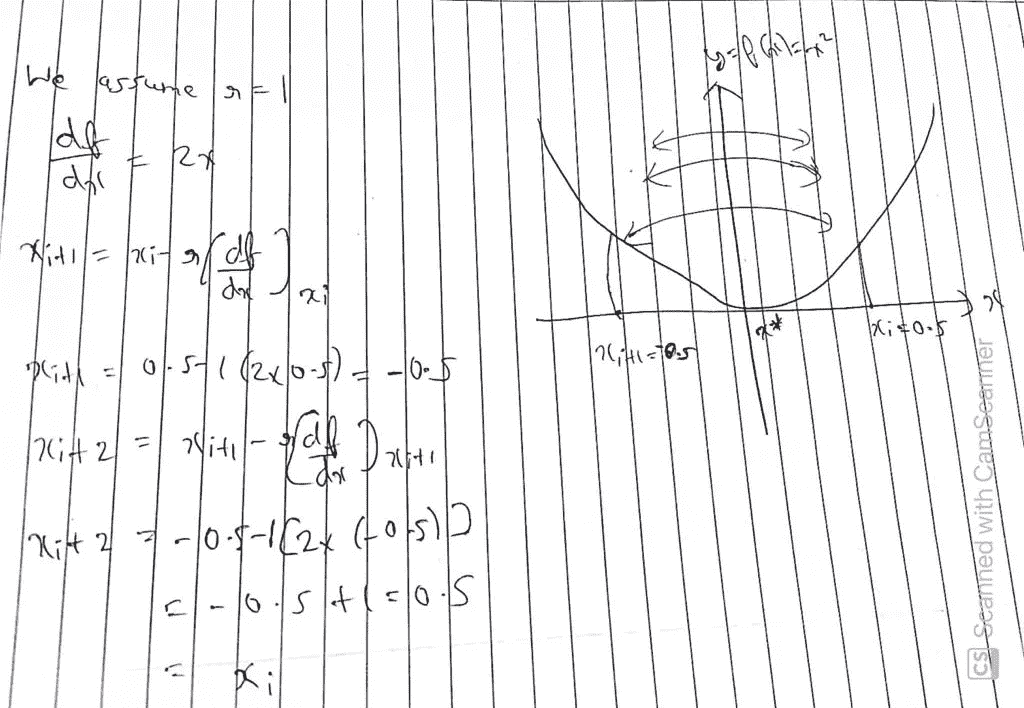 We assume r = 1
df/dx = 2x
xi+1 = xi - r(df/dx]xi
xi+1 = 0.5-1(2x0.5) = -0.5
xi+2 = xi+1 - r(df/dx]xi+1
xi+2 = -0.5-1[2x(-0.5)]
= -0.5+1 = 0.5
= xi
y=f(x)=x²
x
x*
xi=0.5
xi+1=-0.5
CS Scanned with CamScanner